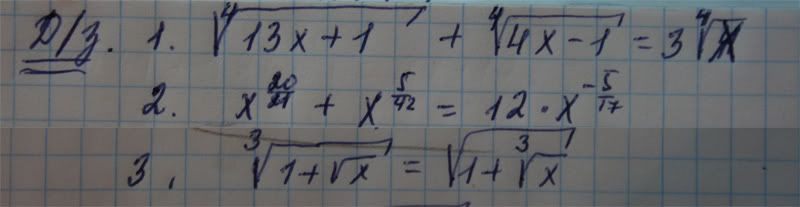 Д/з. 1. ⁴√(13x+1) + ⁴√(4x-1) = 3 ⁴√x
2. x^(20/21) + x^(5/42) = 12 · x^(-5/17)
3. ³√(1+√x) = √(1+³√x)